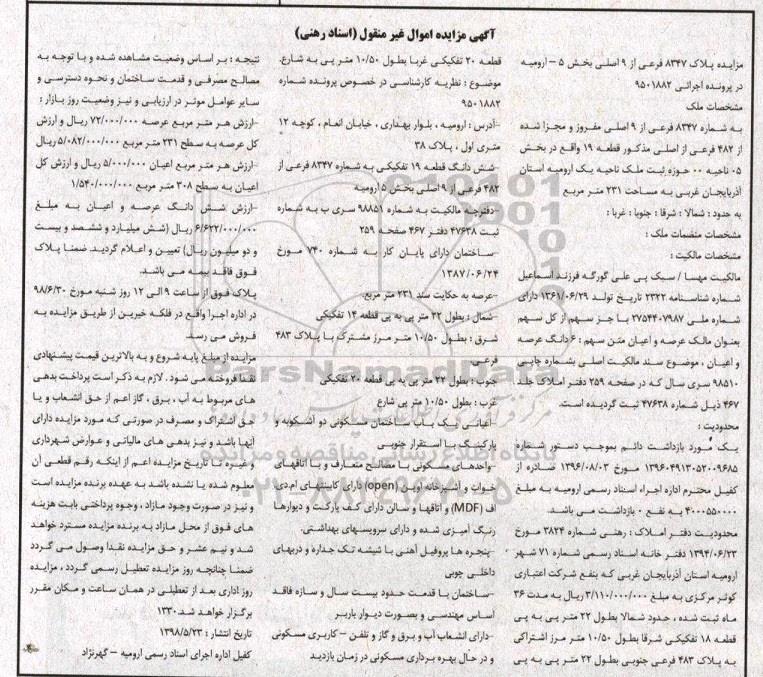 آگهی مزایده اموال غیر منقول (اسناد رهنی)
مزایده پلاک ۸۳۴۷ فرعی از ۹ اصلی بخش ۵ – ارومیه
در پرونده اجرائی ۹۵۰۱۸۸۲
مشخصات ملک
به شماره ۸۳۴۷ فرعی از ۹ اصلی مفروز و مجزا شده
از ۴۸۲ فرعی از اصلی مذکور قطعه ۱۹ واقع در بخش
۰۵ ناحیه ۰۰ حوزه ثبت ملک ناحیه یک ارومیه استان
آذربایجان غربی به مساحت ۲۳۱ متر مربع
به حدود : شمالا : شرقا : جنوبا : غربا :
مشخصات منضمات ملک :
مشخصات مالکیت :
مالکیت مهسا / سبک پی علی گورگه فرزند اسماعیل
شماره شناسنامه ۲۳۲۲ تاریخ تولد ۱۳۶۱/۰۶/۲۹ دارای
شماره ملی ۲۷۵۴۴۰۷۹۸۷ با جز سهم از کل سهم
بعنوان مالک عرصه و اعیان متن سهم : ۶ دانگ عرصه
و اعیان ، موضوع سند مالکیت اصلی بشماره چاپی
۹۸۵۱۰ سری سال که در صفحه ۲۵۹ دفتر املاک جلد
۴۶۷ ذیل شماره ۴۷۶۳۸ ثبت گردیده است.
محدودیت :
یک مورد بازداشت دائم بموجب دستور شماره
۱۳۹۶۰۴۹۱۳۰۵۲۰۰۹۶۸۵ مورخ ۱۳۹۶/۰۸/۰۳ صادره از
کفیل محترم اداره اجراء اسناد رسمی ارومیه به مبلغ
۴۰۰۰۵۵۰۰۰۰ به نفع ۰ بازداشت می باشد.
محدودیت دفتر املاک : رهنی شماره ۳۸۲۴ مورخ
۱۳۹۴/۰۶/۲۳ دفتر خانه اسناد رسمی شماره ۷۱ شهر
ارومیه استان آذربایجان غربی که بنفع شرکت اعتباری
کوثر مرکزی به مبلغ ۳/۱۱۰/۰۰۰/۰۰۰ ریال به مدت ۳۶
ماه ثبت شده ، حدود شمالا بطول ۲۲ متر پی به پی
قطعه ۱۸ تفکیکی شرقا بطول ۱۰/۵۰ متر مرز اشتراکی
به پلاک ۴۸۳ فرعی جنوبی بطول ۲۲ متر پی به پی
قطعه ۲۰ تفکیکی غربا بطول ۱۰/۵۰ متر پی به شارع.
موضوع : نظریه کارشناسی در خصوص پرونده شماره
۹۵۰۱۸۸۲
-آدرس : ارومیه ، بلوار بهداری ، خیابان انعام ، کوچه ۱۲
متری اول ، پلاک ۳۸
-شش دانگ قطعه ۱۹ تفکیکی به شماره ۸۳۴۷ فرعی از
۴۸۲ فرعی از ۹ اصلی بخش ۵ ارومیه
-دفترچه مالکیت به شماره ۹۸۸۵۱ سری ب به شماره
ثبت ۴۷۶۳۸ دفتر ۴۶۷ صفحه ۲۵۹
-ساختمان دارای پایان کار به شماره ۷۴۰ مورخ
۱۳۸۷/۰۶/۲۴
-عرصه به حکایت سند ۲۳۱ متر مربع
-شمال : بطول ۲۲ متر پی به پی قطعه ۱۴ تفکیکی
شرق : بطول ۱۰/۵۰ متر مرز مشترک با پلاک ۴۸۳
فرعی
جنوب : بطول ۲۲ متر پی به پی قطعه ۲۰ تفکیکی
غرب : بطول ۱۰/۵۰ متر پی شارع
-اعیانی یک باب ساختمان مسکونی دو اشکوبه و
پارکینگ با استقرار جنوبی
-واحدهای مسکونی با مصالح متعارف و با اتاقهای
خواب و آشپزخانه اوپن (open) دارای کابینتهای ام.دی
اف (MDF) و اتاقها و سالن دارای کف پارکت و دیوارها
رنگ آمیزی شده و دارای سرویسهای بهداشتی.
-پنجره ها پروفیل آهنی با شیشه تک جداره و دربهای
داخلی چوبی
-ساختمان با قدمت حدود بیست سال و سازه فاقد
اساس مهندسی و بصورت دیوار باربر
-دارای انشعاب آب و برق و گاز و تلفن – کاربری مسکونی
و در حال بهره برداری مسکونی در زمان بازدید
نتیجه : بر اساس وضعیت مشاهده شده و با توجه به
مصالح مصرفی و قدمت ساختمان و نحوه دسترسی و
سایر عوامل موثر در ارزیابی و نیز وضعیت روز بازار :
-ارزش هر متر مربع عرصه ۷۲/۰۰۰/۰۰۰ ریال و ارزش
کل عرصه به سطح ۲۳۱ متر مربع ۵/۰۸۲/۰۰۰/۰۰۰ ریال
-ارزش هر متر مربع اعیان ۵/۰۰۰/۰۰۰ ریال و ارزش کل
اعیان به سطح ۳۰۸ متر مربع ۱/۵۴۰/۰۰۰/۰۰۰
-ارزش شش دانگ عرصه و اعیان به مبلغ
۶/۶۲۲/۰۰۰/۰۰۰ ریال (شش میلیارد و ششصد و بیست
و دو میلیون ریال) تعیین و اعلام گردید. ضمنا پلاک
فوق فاقد بیمه می باشد.
پلاک فوق از ساعت ۹ الی ۱۲ روز شنبه مورخ ۹۸/۶/۳۰
در اداره اجرا واقع در فلکه خیرین از طریق مزایده به
فروش می رسد.
مزایده از مبلغ پایه شروع و به بالاترین قیمت پیشنهادی
نقدا فروخته می شود . لازم به ذکر است پرداخت بدهی
های مربوط به آب ، برق ، گاز اعم از حق انشعاب و یا
حق اشتراک و مصرف در صورتی که مورد مزایده دارای
آنها باشد و نیز بدهی های مالیاتی و عوارض شهرداری
و غیره تا تاریخ مزایده اعم از اینکه رقم قطعی آن
معلوم شده یا نشده باشد به عهده برنده مزایده است
و نیز در صورت وجود مازاد ، وجوه پرداختی بابت هزینه
های فوق از محل مازاد به برنده مزایده مسترد خواهد
شد و نیم عشر و حق مزایده نقدا وصول می گردد
ضمنا چنانچه روز مزایده تعطیل رسمی گردد ، مزایده
روز اداری بعد از تعطیلی در همان ساعت و مکان مقرر
برگزار خواهد شد ۱۳۳۰
تاریخ انتشار : ۱۳۹۸/۵/۲۳
کفیل اداره اجرای اسناد رسمی ارومیه – گهرنژاد
ParsNamadData
پایگاه اطلاع رسانی مناقصه و مزایده